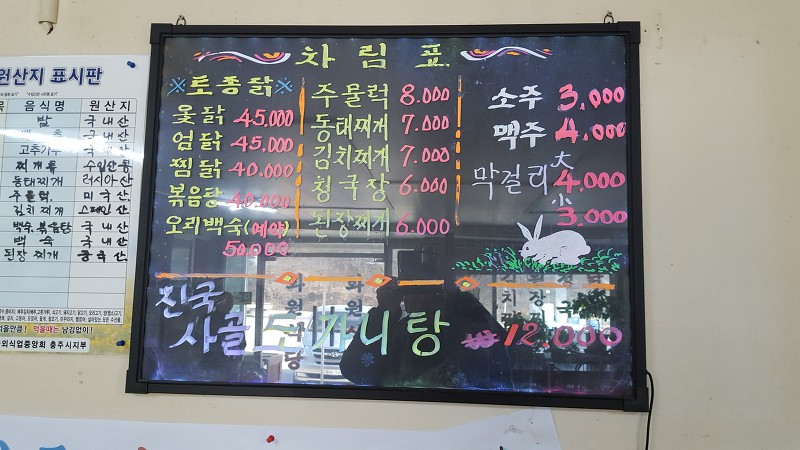 원산지 표시판
음식명 원산지
밥 국내산
배추 국내산
고추가루 국내산
찌개류 수입산콩
동태찌개 러시아산
주물럭. 미국산.
김치찌개 스페인산
백숙.볶음탕 국내산
백숙 국내산
된장찌개 중국산
먹을때는 남김없이!
외식업중앙회 충주시지부
차림표
※토종닭※
옻닭 45,000
엄닭 45,000
찜닭 40,000
볶음탕 40,000
오리백숙(예약)
50,000
주물럭 8.000
동태찌개 7.000
김치찌개 7.000
청국장 6.000
된장찌개 6.000
소주 3,000
맥주 4,000
막걸리 大 4,000
小 3,000
진국
사골 도가니탕 ₩12,000